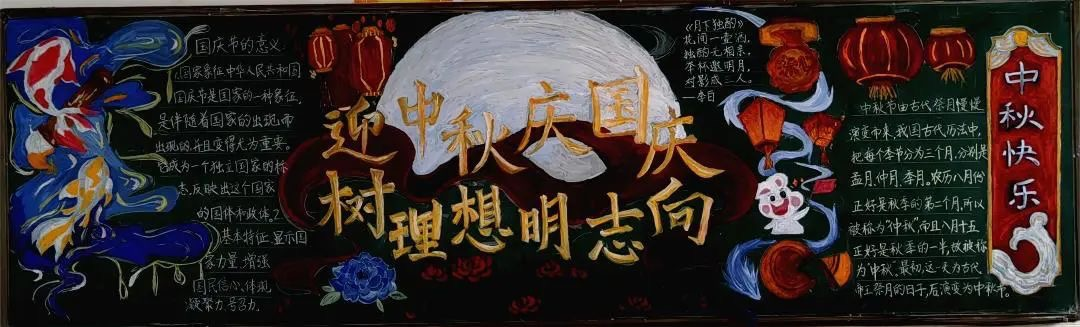 国庆节的意义
国家象征中华人民共和国
国庆节是国家的一种象征,
是伴随着国家的出现而
出现的,并且变得尤为重要。
它成为一个独立国家的标
志,反映出这个国家
的国体和政体。2
基本特征 显示国
家力量,增强
国民信心,体现
凝聚力,号召力。
迎中秋庆国庆
树理想明志向
《月下独酌》
花间一壶酒,
独酌无相亲。
举杯邀明月,
对影成三人。
—李白
中秋节由古代祭月慢慢
演变而来,我国古代历法中,
把每个季节分为三个月,分别是
孟月、仲月、季月。农历八月份
正好是秋季的第二个月,所以
被称为“仲秋”,而且八月十五
正好是秋季的一半,故被称
为“中秋”。最初,这一天为古代
帝王祭月的日子,后演变为中秋节。
中秋快乐